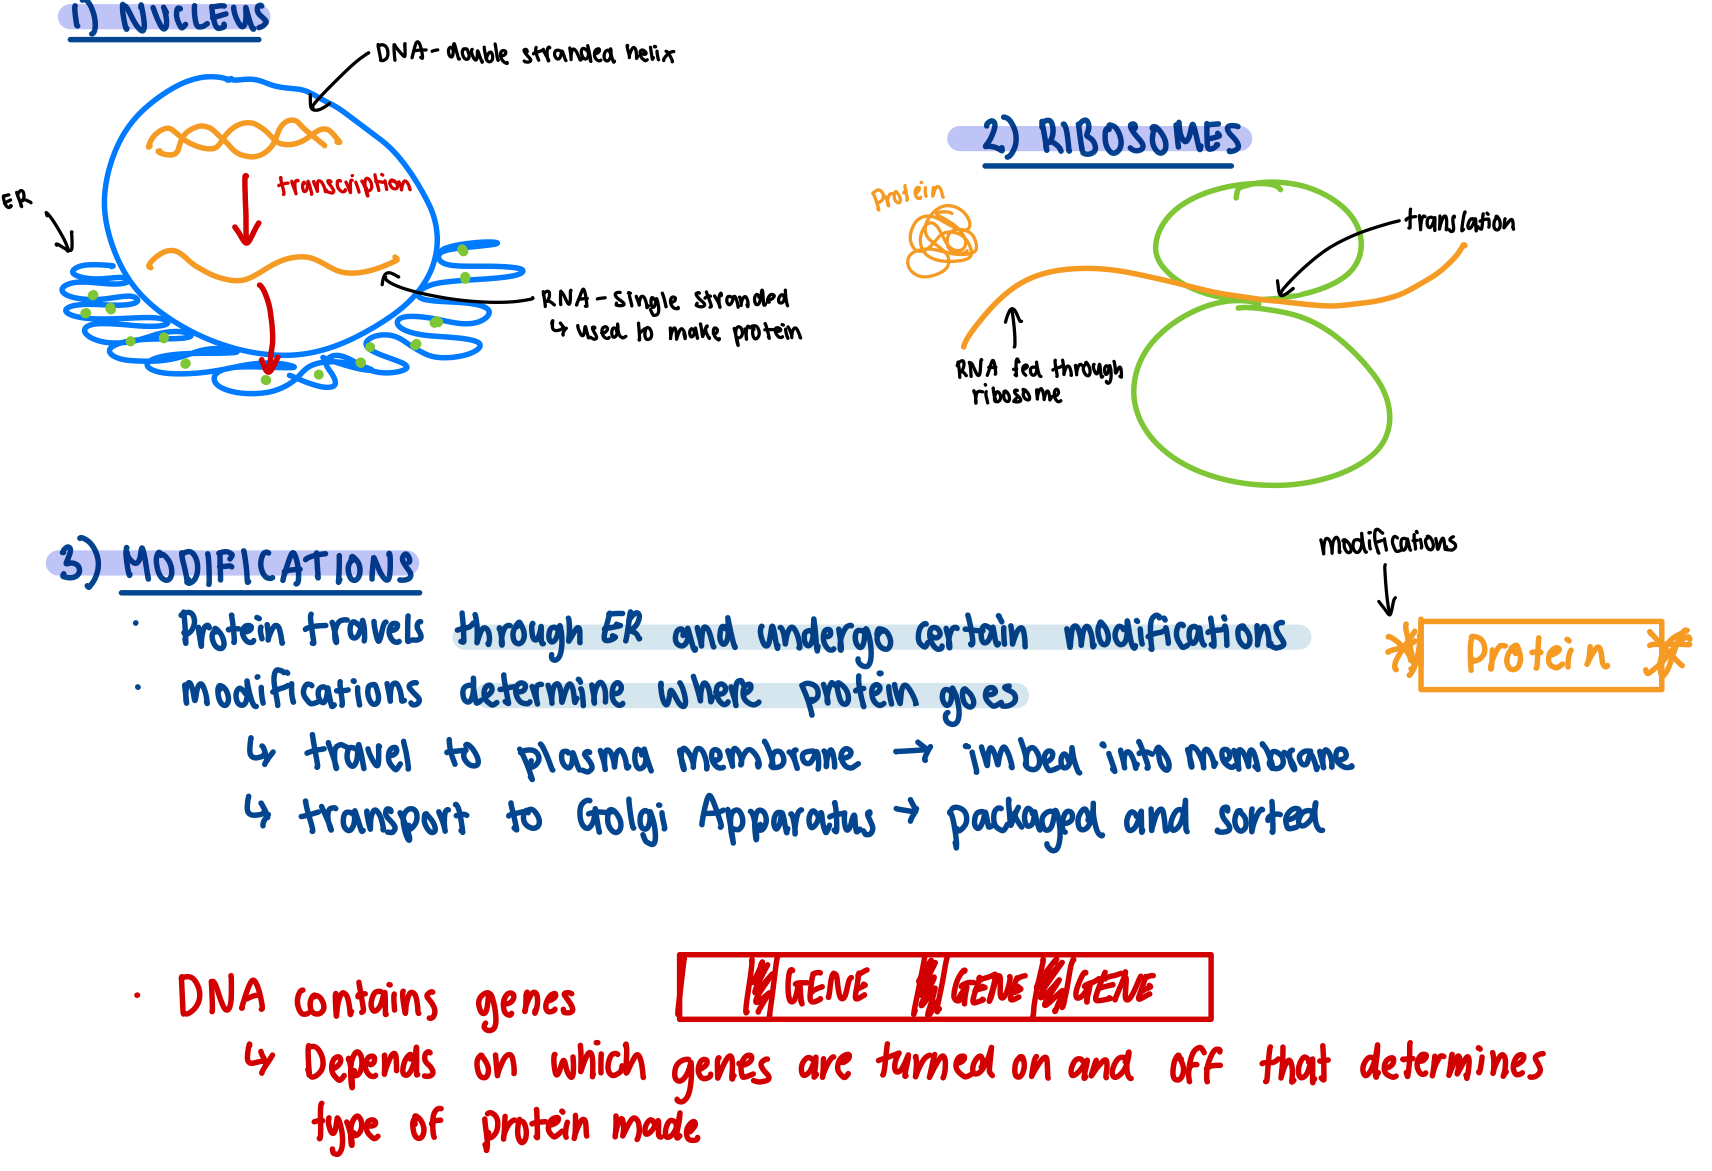 1) NUCLEUS
DNA - double stranded helix
transcription
ER
RNA - single stranded
↳ used to make protein
2) RIBOSOMES
Protein
translation
RNA fed through
ribosome
3) MODIFICATIONS
modifications
Protein
· Protein travels through ER and undergo certain modifications
· modifications determine where protein goes
↳ travel to plasma membrane → imbed into membrane
↳ transport to Golgi Apparatus → packaged and sorted
· DNA contains genes
GENE GENE GENE
↳ Depends on which genes are turned on and off that determines
type of protein made